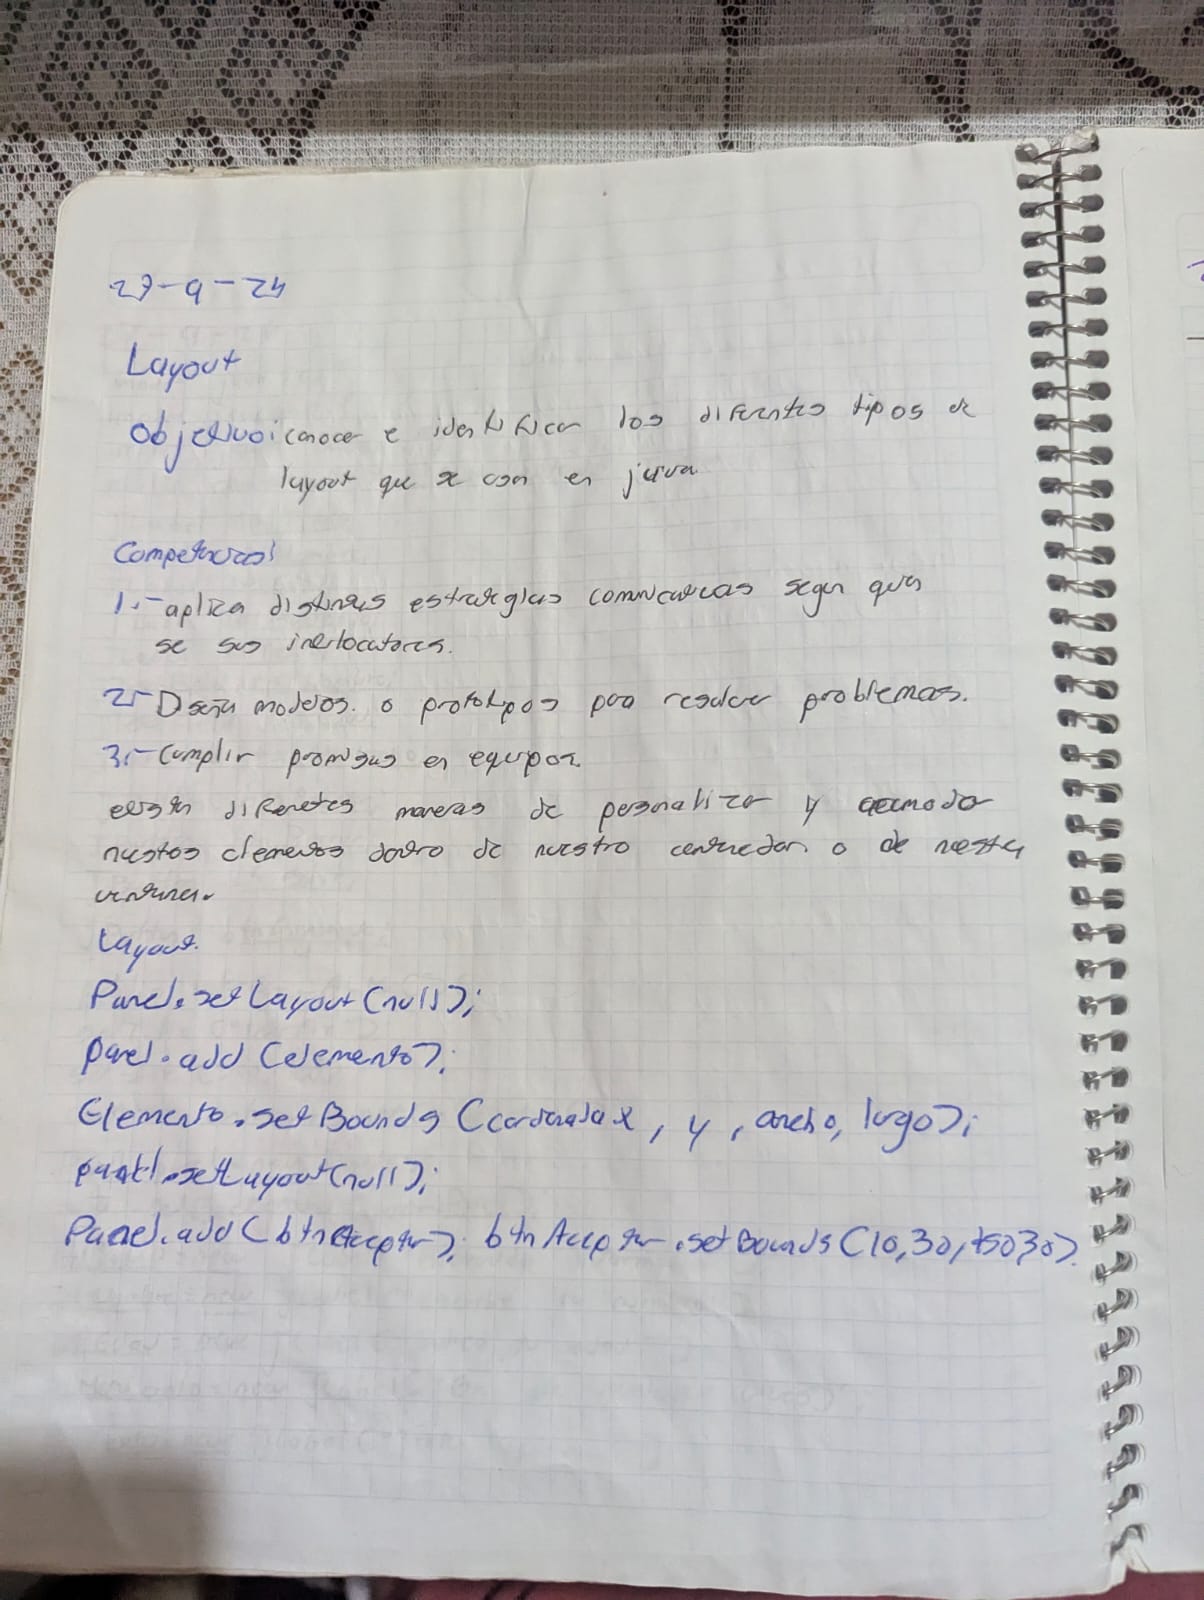 27-9-24
Layout
Objetivo: conocer e identificar los diferentes tipos de
layout que se usan en java
Competencias:
1.- aplica distintas estrategias comunicativas segun quien
se sus interlocutores.
2- Diseña modelos o prototipos para resolver problemas.
3.- Cumplir promisas en equipos.
existen diferentes maneras de personalizar y acomodar
nuestos elementos dentro de nuestro contenedor o de nuestra
ventana.
Layout.
Panel.setLayout(null);
panel.add(elemento);
Elemento.setBounds(cordenada x, y, ancho, largo);
panel.setLayout(null);
Panel.add(btnAceptar); btnAceptar.setBounds(10,30,150,30).